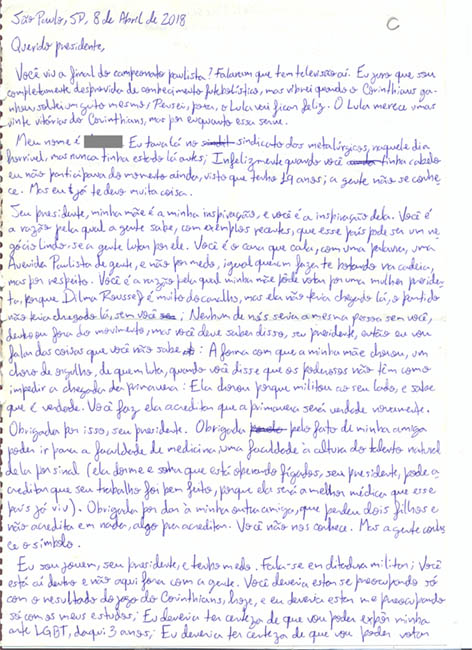 São Paulo, SP, 8 de Abril de 2018
C
Querido presidente,
Você viu a final do campeonato paulista? Falaram que tem televisão aí. Eu juro que sou
completamente desprovida de conhecimento futebolístico, mas vibrei quando o Corinthians ga-
nhou, soltei um grito mesmo; Pensei, pora, o Lula vai ficar feliz. O Lula merece umas
vinte vitórias do Corinthians, mas por enquanto essa serve.
Meu nome é Eu tava lá no sindicato dos metalúrgicos, naquele dia
horrível, mas nunca tinha estado lá antes; Infelizmente quando você tinha cabelo
eu não participava do momento ainda, visto que tenho 19 anos; a gente não se conhe-
ce. Mas eu já te devo muita coisa.
Seu presidente, minha mãe é a minha inspiração, e você é a inspiração dela. Você é
a razão pela qual a gente sabe, com exemplos recentes, que esse país pode ser um ne-
gócio lindo - se a gente lutar por ele. Você é o cara que cala, com uma palavra, uma
Avenida Paulista de gente, e não por medo, igual querem fazer te botando na cadeia,
mas por respeito. Você é a razão pela qual minha mãe pôde votar por uma mulher presiden-
ta, porque Dilma Rousseff é muito do caralho, mas ela não teria chegado lá, o partido
não teria chegado lá, sem você; Nenhum de nós seria a mesma pessoa sem você,
dentro ou fora do movimento, mas você deve saber disso, seu presidente, então eu vou
falar das coisas que você não sabe: A forma com que a minha mãe chorou, um
choro de orgulho, de quem luta, quando você disse que os poderosos não têm como
impedir a chegada da primavera: Ela chorou porque militou ao seu lado, e sabe
que é verdade. Você faz ela acreditar que a primavera será verdade novamente.
Obrigada por isso, seu presidente. Obrigada pelo fato de minha amiga
poder ir para a faculdade de medicina, uma faculdade à altura do talento natural
dela por sinal (ela dorme e sonha que está operando fígados, seu presidente, pode a-
creditar que seu trabalho foi bem feito, porque ela será a melhor médica que esse
país já viu). Obrigada por dar à minha outra amiga, que perdeu dois filhos e
não acredita em nada, algo pra acreditar. Você não nos conhece. Mas a gente conhe-
ce o símbolo.
Eu sou jovem, seu presidente, e tenho medo. Fala-se em ditadura militar; Você
está aí dentro e não aqui fora com a gente. Você deveria estar se preocupando só
com o resultado do jogo do Corinthians, hoje, e eu deveria estar me preocupando
só com os meus estudos; Eu deveria ter certeza de que vou poder expôr minha
arte LGBT, daqui 3 anos; Eu deveria ter certeza de que vou poder votar